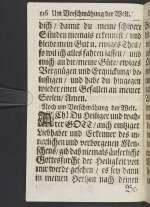 116 Um Verschmähung der Welt.
dich / damit du meine schwere
Sünden niemals erkennest / und
bleibe mein Gut u. ewiges Theil/
so wil ich alles fahren lassen / und
mich an dir/meine Güte/ ewiges
Vergnügen und Erquickung be-
lustigen / und habe du hingegen
wieder einen Gefallen an meiner
Seelen/ Amen.
Noch um Verschmähung der Welt.
Ach! Du Heiliger und wah-
rer GOTT/ auch einziger
Liebhaber und Erkenner des in-
nerlichen und verborgenen Men-
schens; gib daß niemals äusserliche
Gottesfurcht der Heiligkeit von
mir werde gesehen / es sey dann
in meinem Hertzen nach deinem